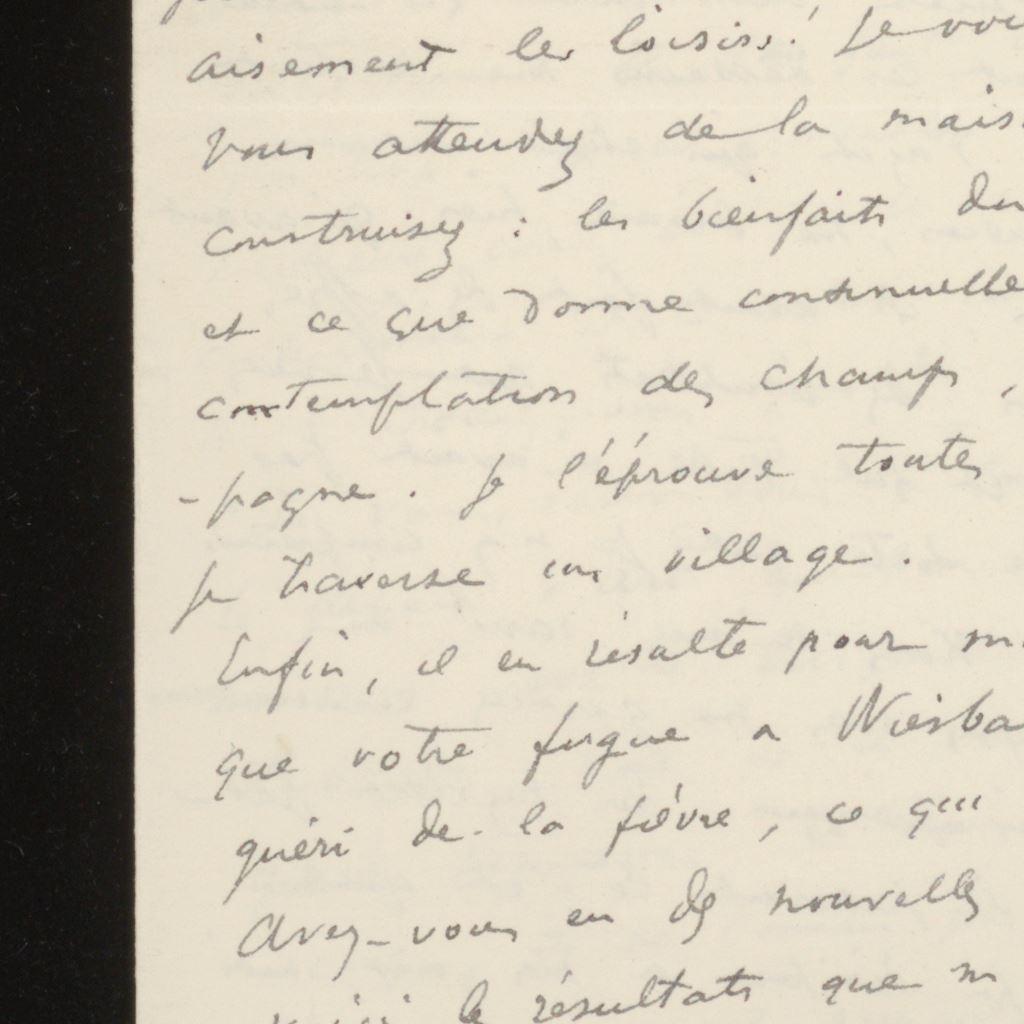 aisement les loisirs! Je vou
vous attendez de la mais
construisez : les bienfaits du
et ce que donne continuelle
contemplation des champs,
-pagne. Je l'éprouve toutes
je traverse un village.
Enfin, il en résulte pour m
que votre fugue a Wiesba
guéri de la fièvre, ce qui
Avez-vous eu des nouvelles
le résultats que m